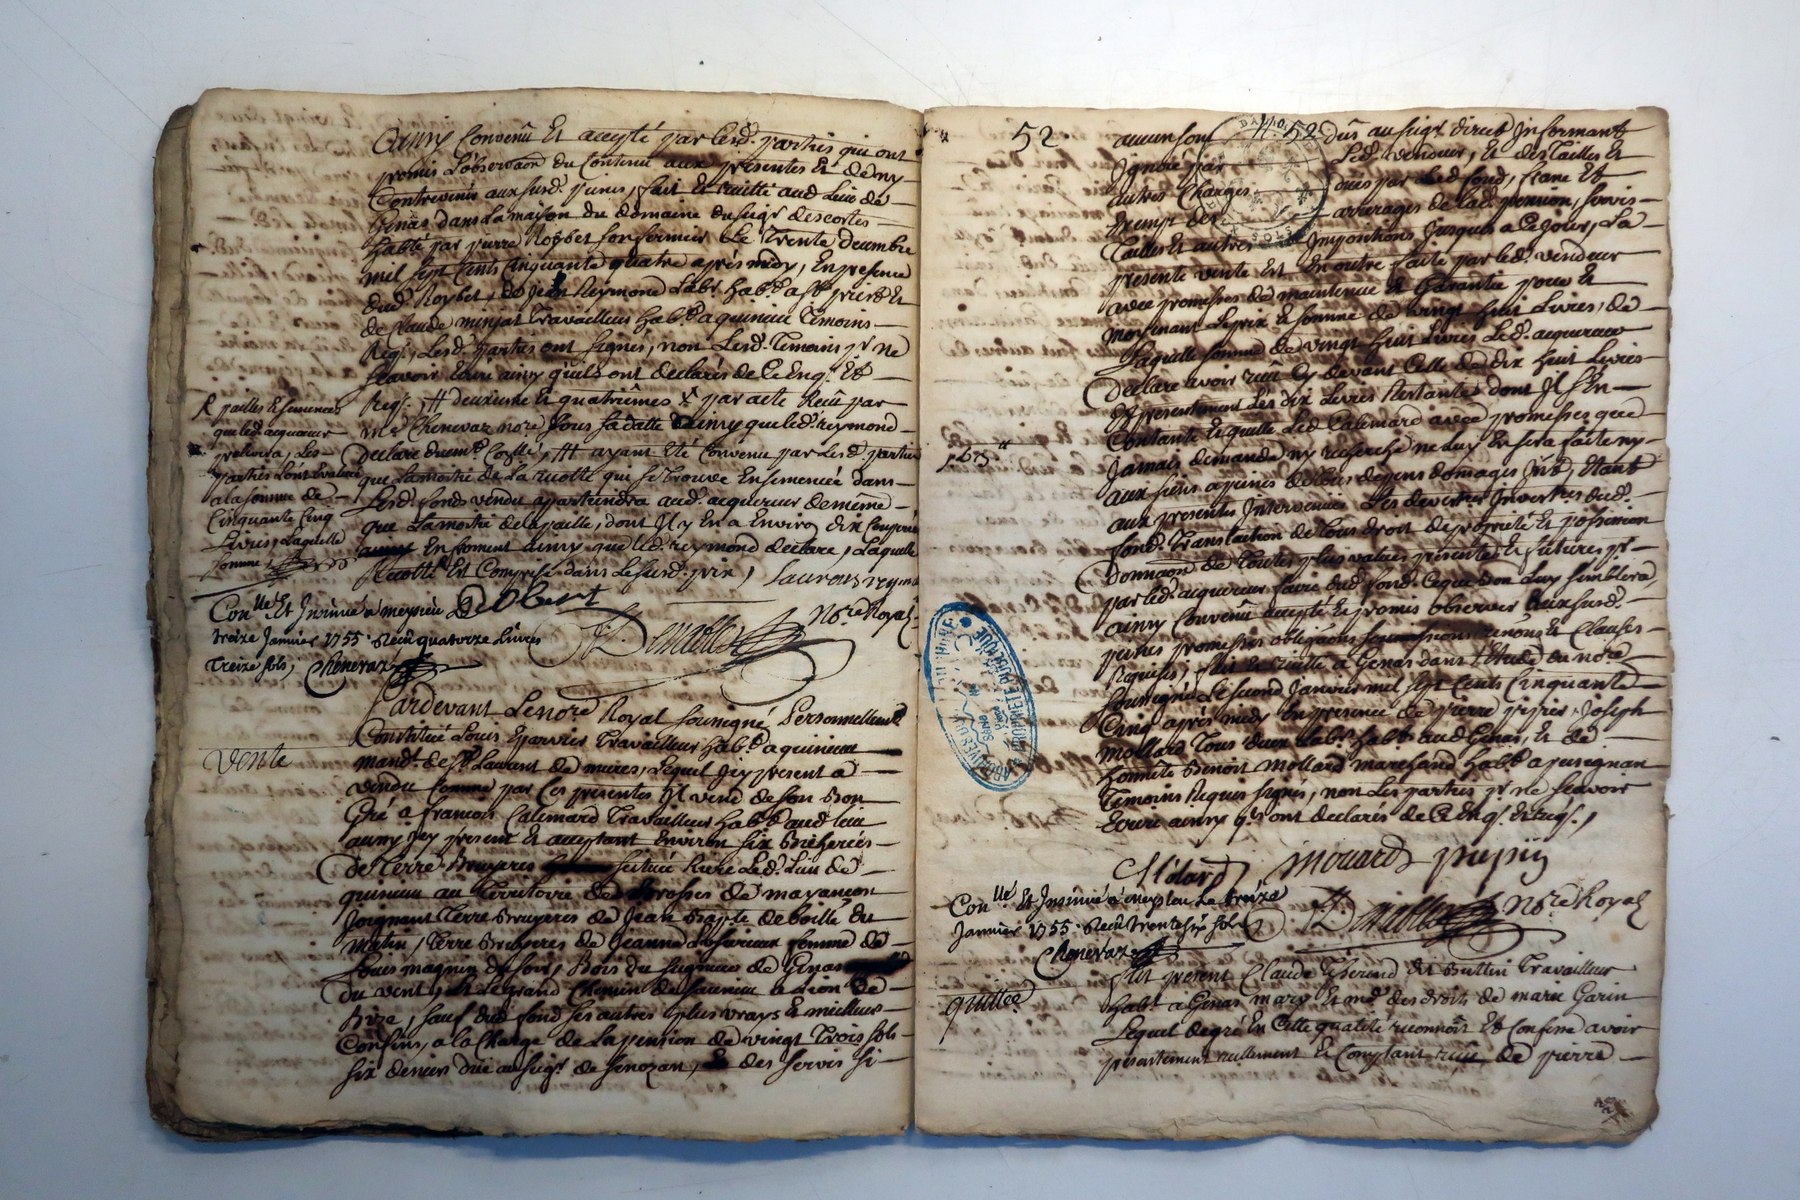 Ainsy Convenû Et accepté par lesd. parties qui ont
promis L'observaon du Contenu aux presentes Et de ny
Contrevenir aux susd. peines, fait Et recitté aud. Lieu de
Genas dans La maison du domaine du seigr. descortes
habité par pierre Roybet son fermier Le Trente decembre
mil sept Cents Cinquante quatre après midy, En presence
dud. Roybet, de Jean Reymond Labr. habt. a st priest Et
de Claude minjat Travailleur habt. a quinieu Temoins
Reqs. Lesd. parties ont signés, non Lesd. Temoins pr. ne
sçavoir Ecrire ainsy qu'ils ont declarés de Ce Enq. Et
Reqs. # deuxieme Et quatriêmes par acte Reçu par
me Chenevaz nore. sous sa datte ainsy que led. reymond
Declare # ayant Eté Convenu par Lesd. parties
que La moitié de La recolte qui se trouve Ensemencée dans
Lesd. fonds vendu appartiendra aud. acquereur de meme
que La moitié de la paille, dont Il y En a Environ dix
En froment ainsy que led. reymond declare, Laquelle
Recolte Est Comprise dans Le susd. prix,
pailles Et semences
que led. acquereur
prelevera, Les
parties Lont Evaluée
a la somme de
Cinquante Cinq
Livres, Laquelle
somme
Laurens reymond
Debert
Nore. Royal
Con.lle Et Insinué a meyzieu Le
treize Janvier 1755. Reçu quatorze Livres
Treize sols, Chenevaz
Vente
Pardevant Le nore Royal soussigné Personnellement
Constitué Louis Eparvier Travailleur habt. a quinieu
mandt. de st. Laurent de mures, Lequel Icy present a
vendu Comme par Ces presentes Il vend de son Bon
Gré a francois Calemard Travailleur habt. aud. Lieu
aussy Icy present Et acceptant Environ six Bicherées
de Terre Bruyeres située Riere Led. Lieu de
quinieu au Territoire de Brosses de mayançon
Joignant Terre Bruyeres de Jean Bapte. de boille du
matin, Terre Bruyeres de Jeanne femme de
Louis magnin du soir, Bois du seigneur de Genas
du vent, Et Le grand Chemin de a Lion de
Bize, sauf dud. fond ses autres plus vrays Et meilleurs
Confins, a la Charge de La pension de vingt Trois sols
six deniers due au seigr. de senozan, des servis si
52
aucun sont dûs au seigr. direct Informant
Ignoré par Led. vendeur, Et des Tailles Et
autres Charges dües par Led. fond, franc Et
Exempt des arrerages de lad. pension, servis
Tailles Et autres Impositions Jusques a Ce Jour, La
presente vente Est En outre faite par led. vendeur
avec promesses de maintenue Et Garantie pour Et
moyenant Le prix Et somme de vingt huit Livres, de
Laquelle somme de vingt huit Livres Led. acquereur
Declare avoir reçu Cy devant Celle de dix huit Livres
Et presentement Les dix Livres Restantes dont Il s'En
Contante Et quitte Led. Calemard avec promesses que
Jamais demande ny recherche ne luy En sera faite ny
aux siens a peines de tous depens domages Int., Etant
aux presentes Intervenües Les devetires Investires dud.
fond, Translation de tous droit de proprieté Et possession
Donnaon de toutes plus values presentes Et futures pr.
par led. acquereur faire dud. fond Ce que Bon Luy semblera,
ainsy Convenû accepté Et promis observer aux susd.
peines promesses obligaons Et Clauses
Requises, fait Et recitté a Genas dans L'Etude du nore.
soussigné Le second Janvier mil sept Cents Cinquante
Cinq après midy En presence de pierre pepin, Joseph
mollard Tous deux Labr. habt. aud. Genas, Et de
honnete Benoit mollard marchand habt. a pusignan
Temoins Requis signés, non Les parties pr. ne sçavoir
Ecrire ainsy q. ont declarés de Ce Enqs. Et reqs.,
Molard mouard pepin
Con.lle Et Insinué a meyzieu Le treize
Janvier 1755. Reçu trente six sols
Chenevaz
Nore Royal
quittce.
fut present Claude Tisserand dit Buttin Travailleur
habt. a Genas mary Et me. des droits de marie Garin
Lequel de gré En Cette qualité reconnoit Et Confesse avoir
presentement reellement Et Comptant reçu de pierre
ARCHIVES DU RHÔNE
PROPRIÉTÉ PUBLIQUE